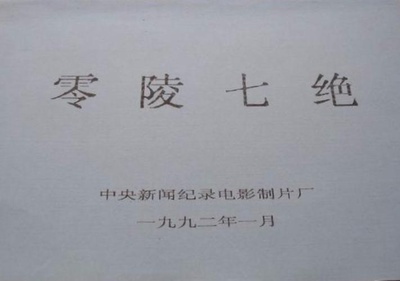 零陵七绝
中央新闻纪录电影制片厂
一九九二年一月